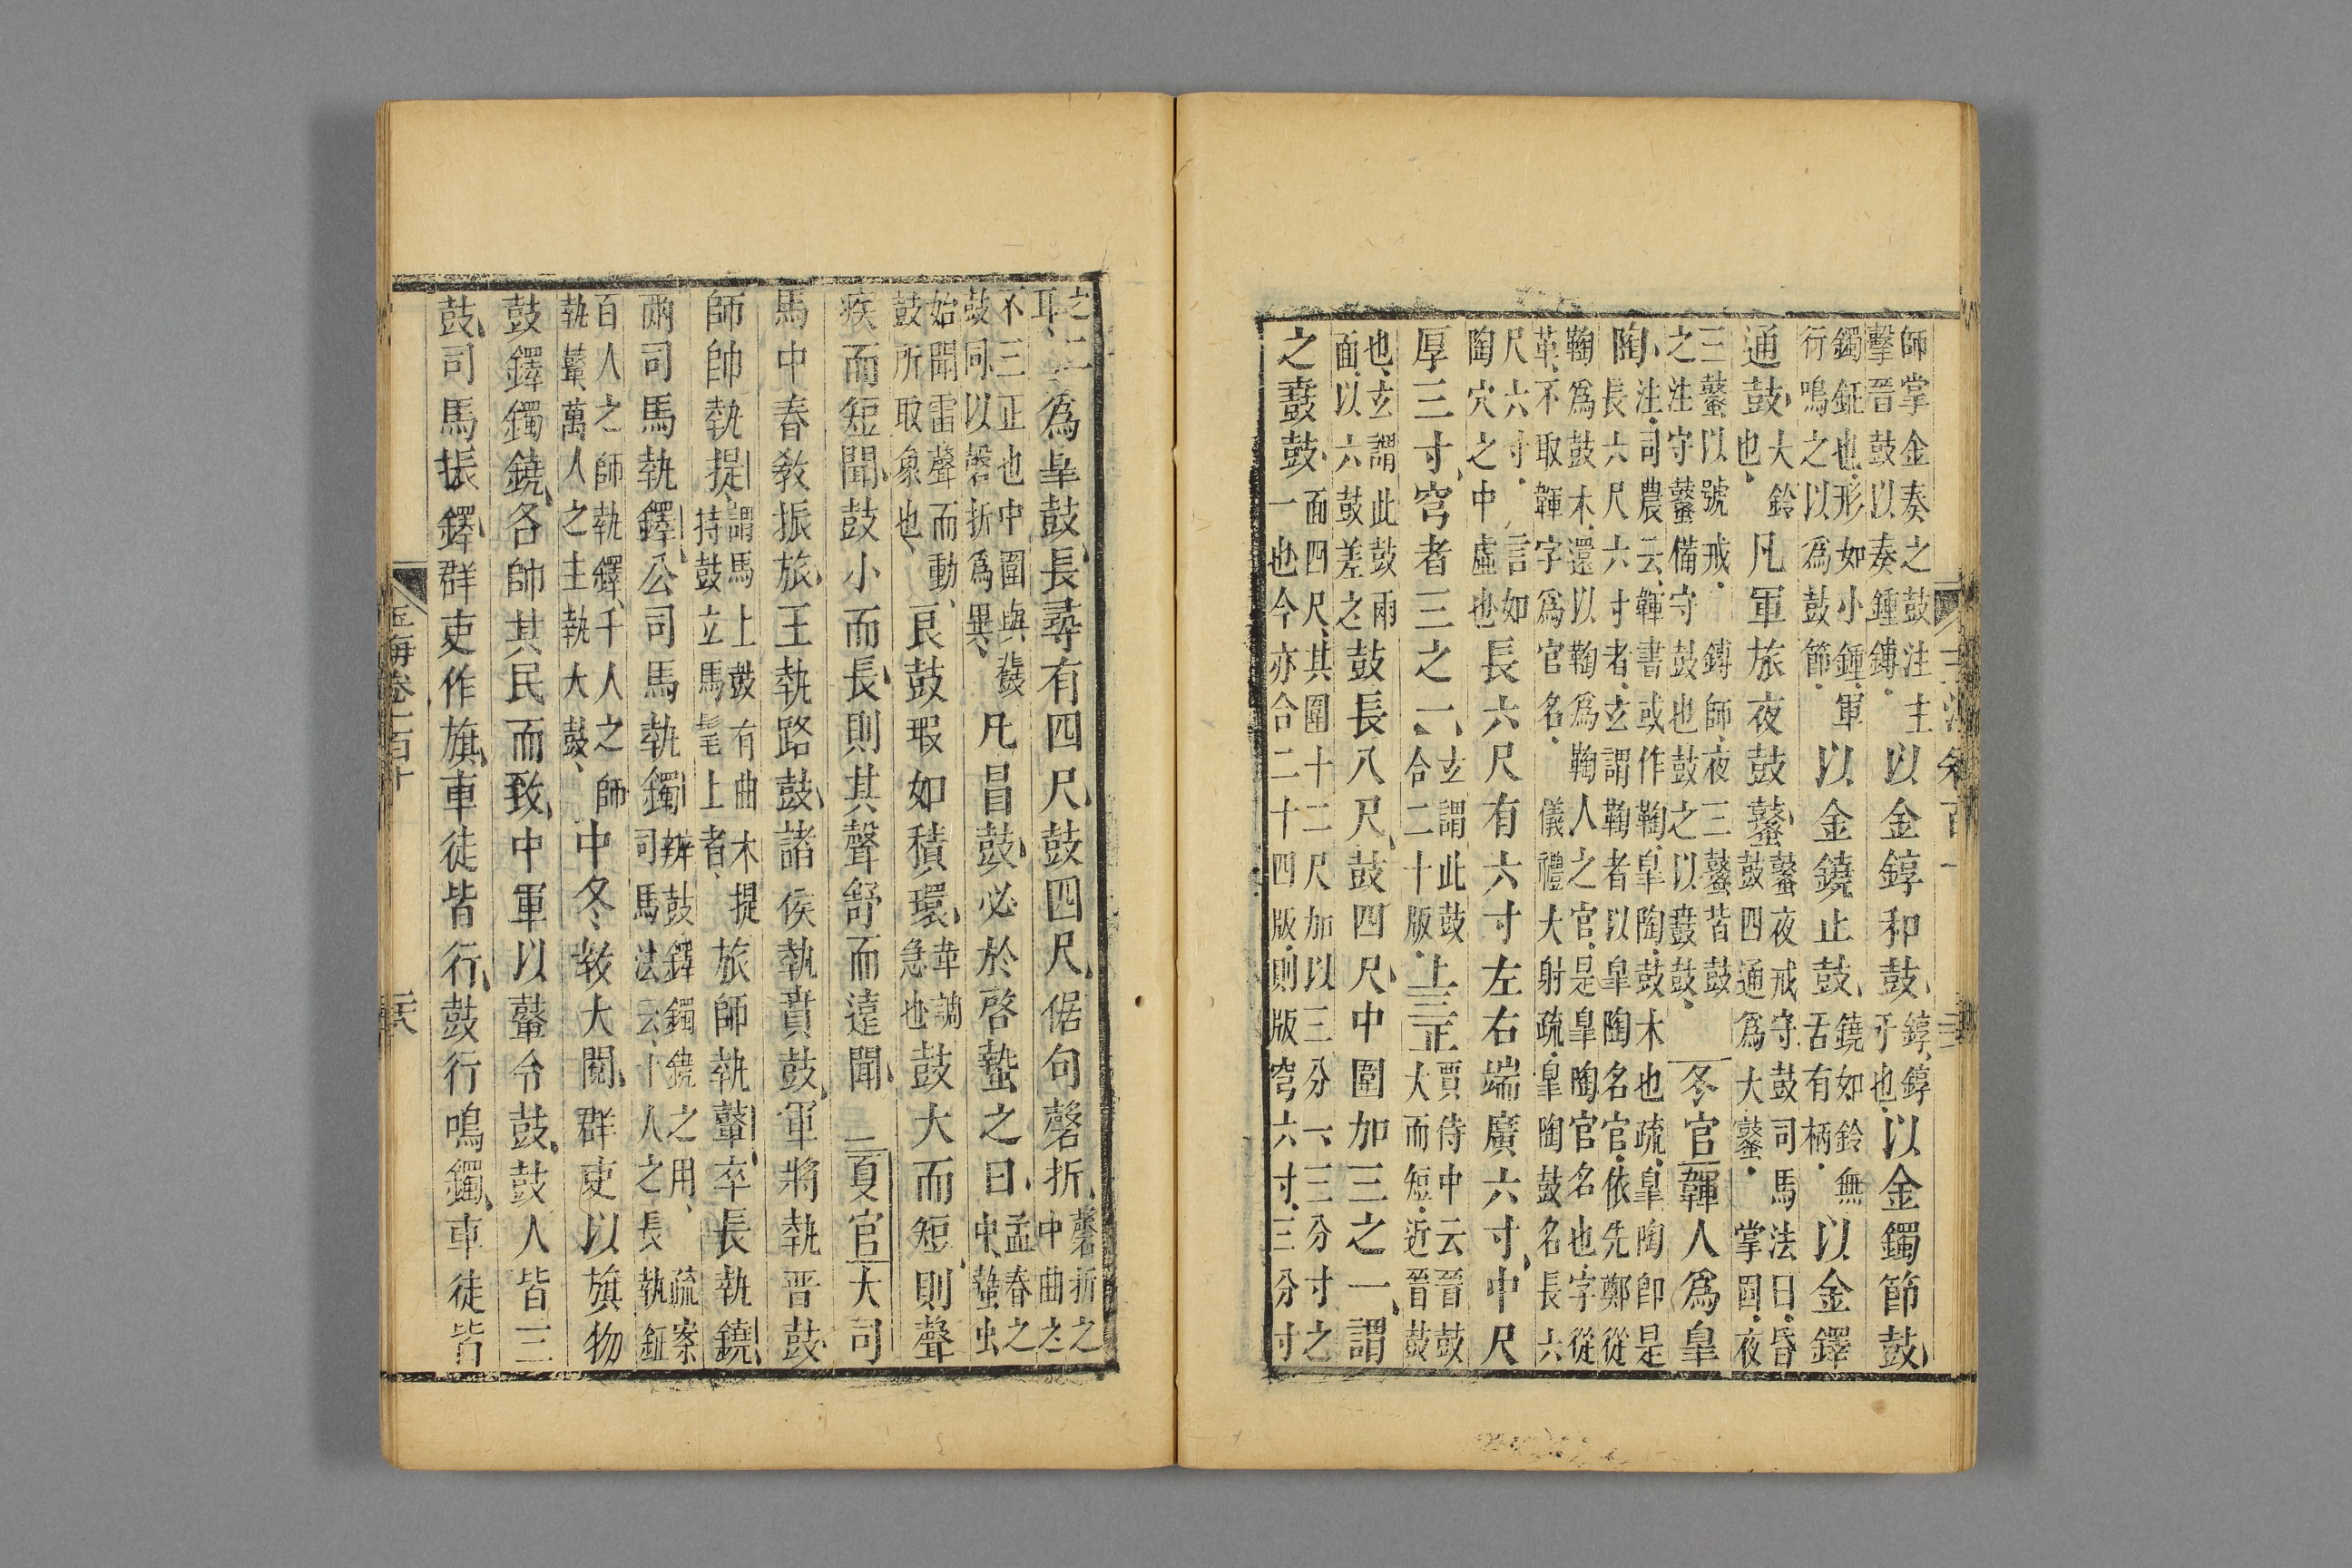 師掌金奏之鼓注主擊晉鼓以奏鍾鎛以金錞和鼓錞錞于也以金鐲節鼓
鐲鉦也形如小鍾軍行鳴之以爲鼓節以金鐃止鼓鐃如鈴無舌有柄以金鐸
通鼓大鈴也凡軍旅夜鼓鼜鼜夜戒守鼓司馬法曰昏鼓四通爲大鼜掌固夜
三鼜以號戒鎛師夜三鼜皆鼓之注守鼜備守鼓也鼓之以鼖鼓冬官韗人爲皐
陶注司農云韗書或作鞠皐陶鼓木也疏皐陶即是長六尺六寸者玄謂鞠者以皐陶名官依先鄭從
鞠爲鼓木還以鞠爲鞠人之官是皐陶官名也字從革不取韗字爲官名儀禮大射疏皐陶鼓名長六
尺六寸言如陶穴之中虛也長六尺有六寸左右端廣六寸中尺
厚三寸穹者三之一玄謂此鼓合二十版上三正賈侍中云晉鼓大而短近晉鼓
也玄謂此鼓兩面以六鼓差之鼓長八尺鼓四尺中圍加三之一謂
之鼖鼓面四尺其圍十二尺加以三分一三分寸之一也今亦合二十四版則版穹六寸三分寸
之二耳爲皐鼓長尋有四尺鼓四尺倨句磬折磬折之中曲之
不三正也中圍與鼖鼓同以磬折爲異凡冒鼓必於啓蟄之日孟春之中蟄虫
始聞雷聲而動鼓所取象也良鼓瑕如積環革調急也鼓大而短則聲
疾而短聞鼓小而長則其聲舒而遠聞夏官大司
馬中春敎振旅王執路鼓諸侯執賁鼓軍將執晋鼓
師帥執提謂馬上鼓有曲木提持鼓立馬髦上者旅師執鼙卒長執鐃
兩司馬執鐸公司馬執鐲辨鼓鐸鐲鐃之用疏案司馬法云十人之長執鉦
百人之師執鐸千人之師執鼙萬人之主執大鼓中冬教大閱群吏以旗物
鼓鐸鐲鐃各帥其民而致中軍以鼙令鼓鼓人皆三
鼓司馬振鐸群吏作旗車徒皆行鼓行鳴鐲車徒皆
玉海卷一百十